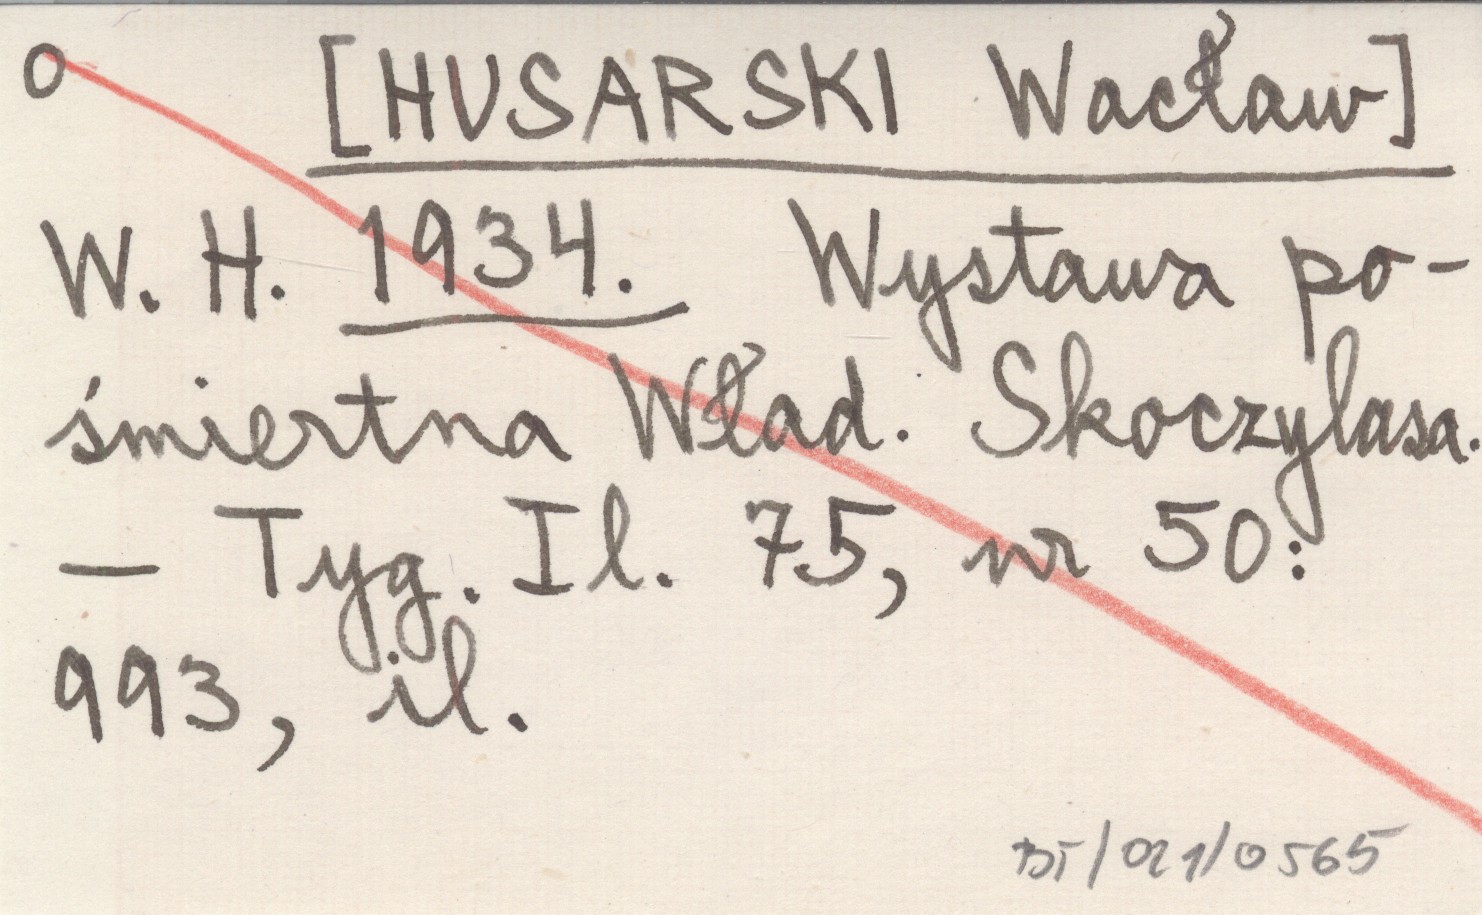 o [HUSARSKI Wacław]
W. H. 1934. Wystawa po-
śmiertna Wład. Skoczylasa.
— Tyg. Il. 75, nr 50:
993, il.
BT/021/0565